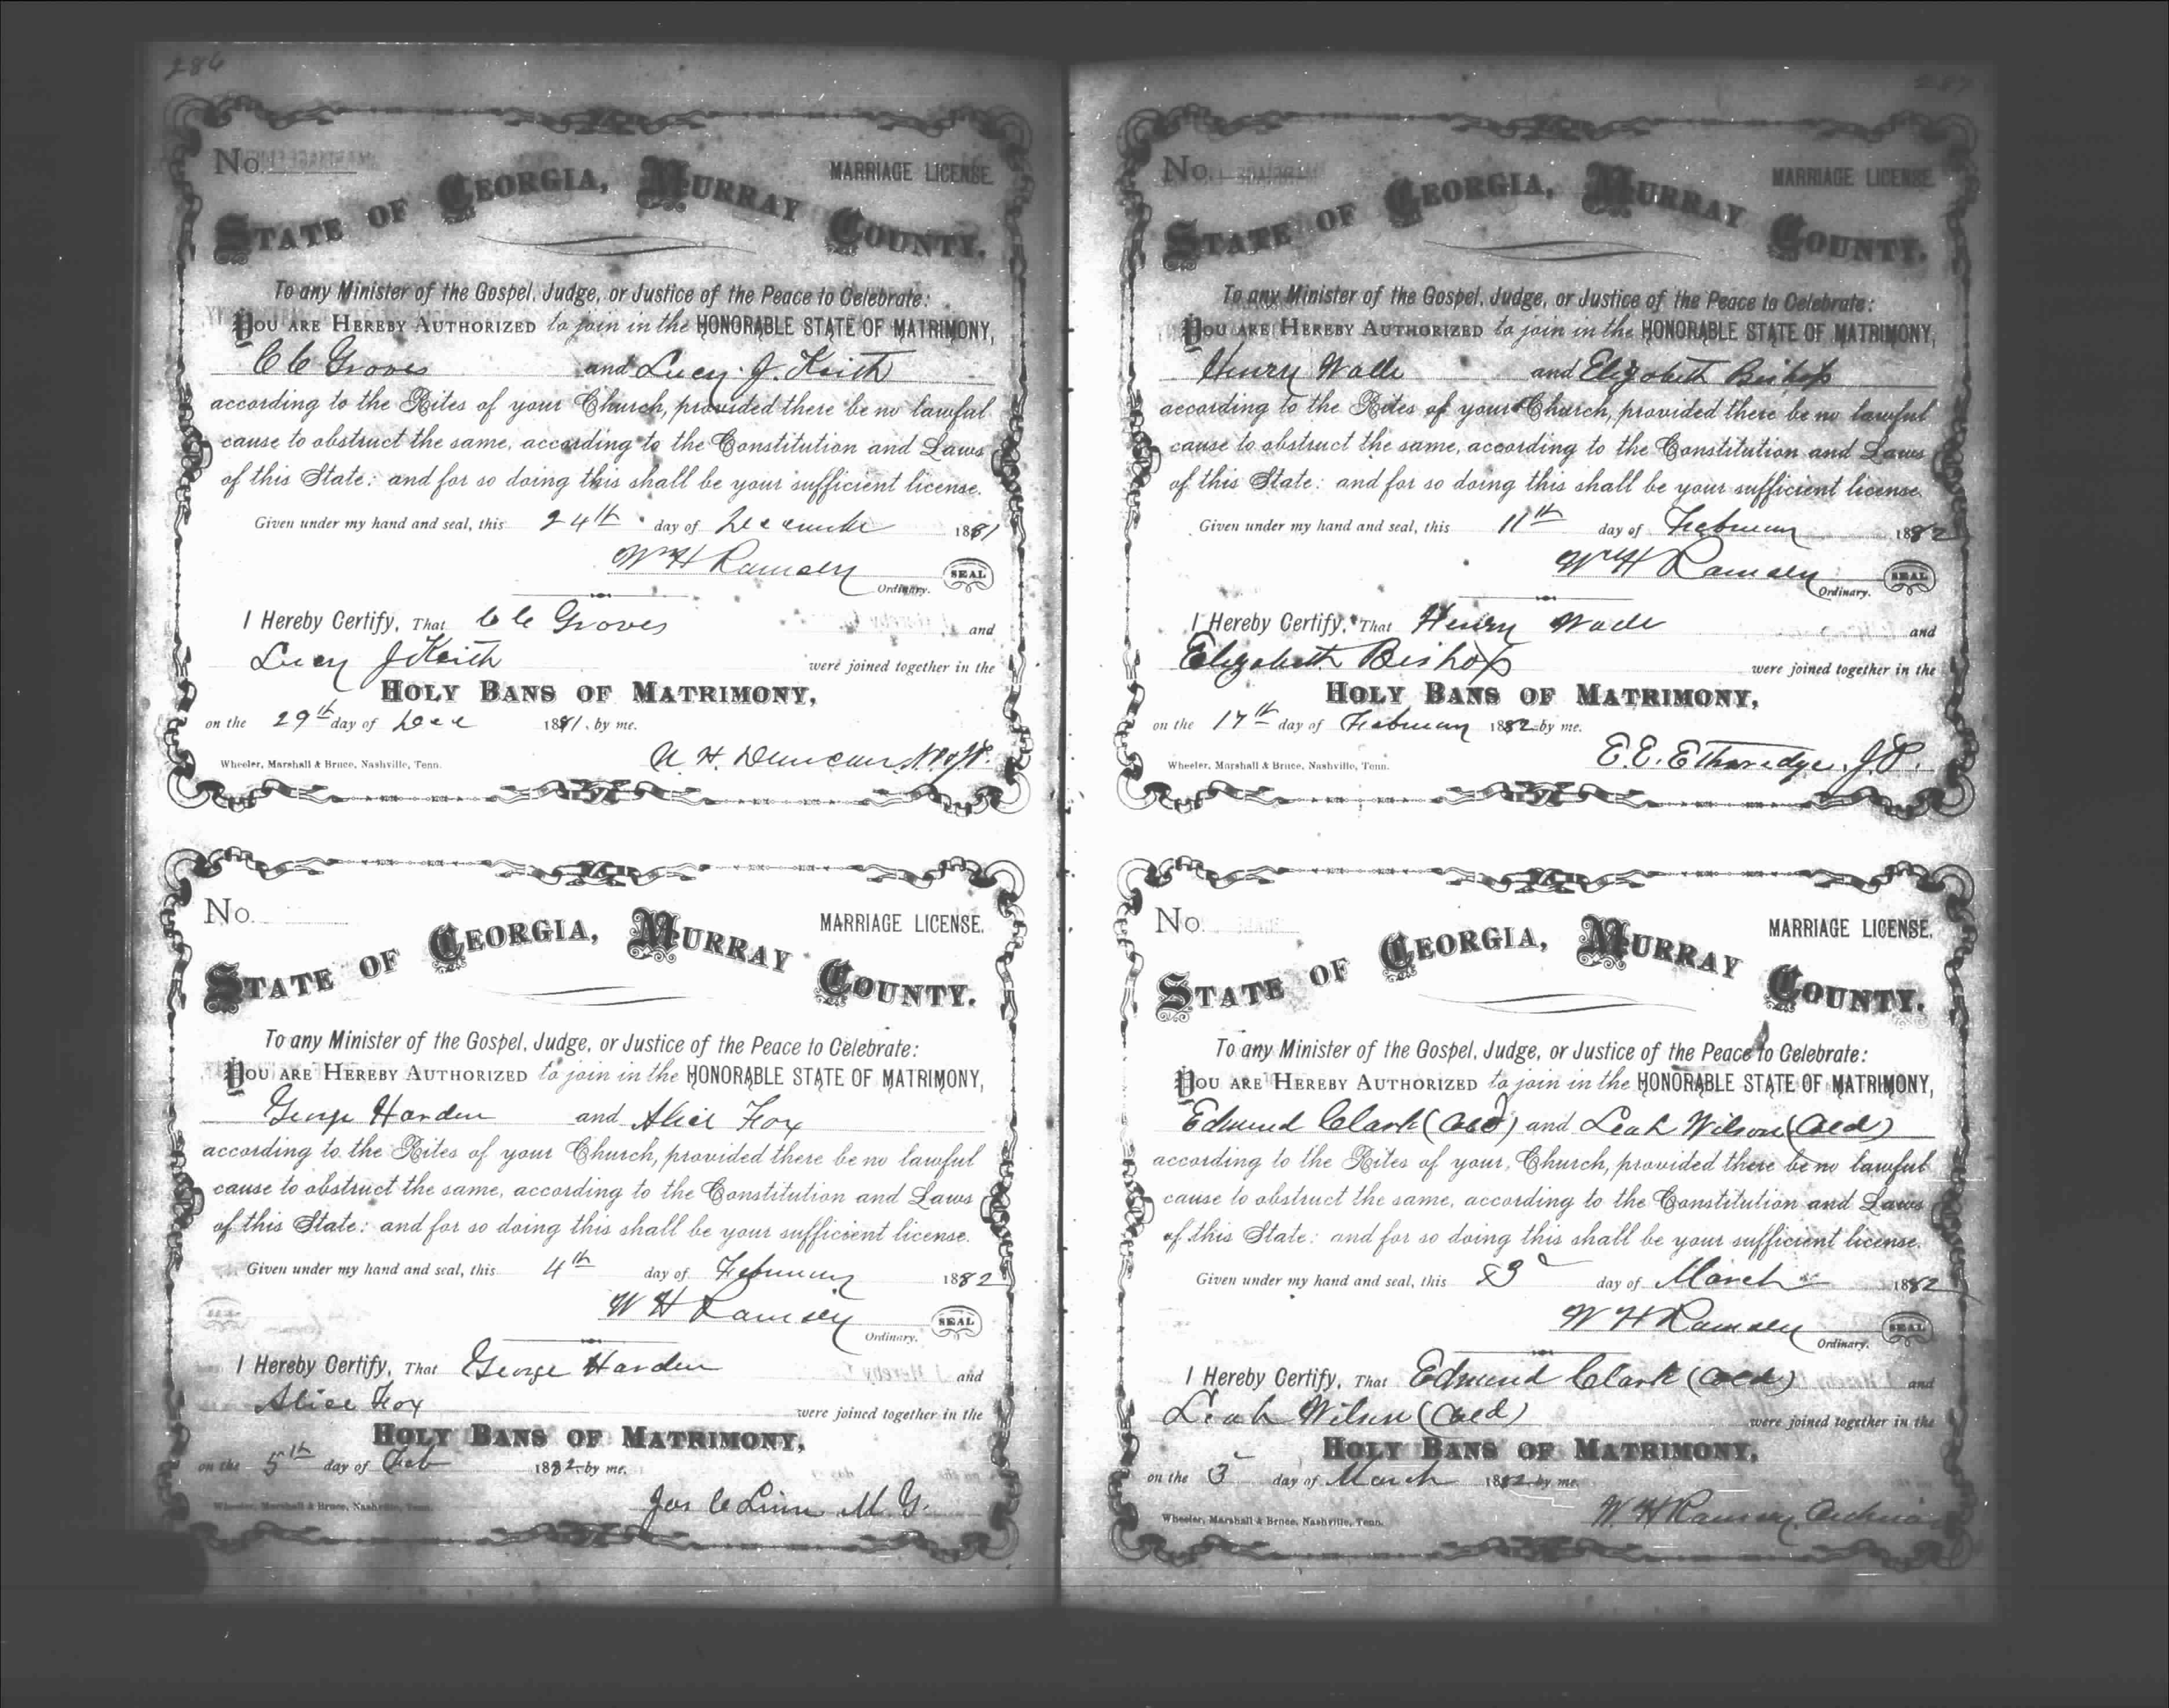 286
No.
MARRIAGE LICENSE.
STATE OF GEORGIA, MURRAY COUNTY.
To any Minister of the Gospel, Judge, or Justice of the Peace to Celebrate:
YOU ARE HEREBY AUTHORIZED to join in the HONORABLE STATE OF MATRIMONY,
C C Groves and Lucy J. Keith
according to the Rites of your Church, provided there be no lawful
cause to obstruct the same, according to the Constitution and Laws
of this State: and for so doing this shall be your sufficient license.
Given under my hand and seal, this 24th day of December 1881
Wm H Ramsey SEAL
Ordinary.
I Hereby Certify, That C C Groves and
Lucy J Keith were joined together in the
HOLY BANS OF MATRIMONY,
on the 29th day of Dec 1881. by me.
A. H. Duncan N.P. & J.P.
Wheeler, Marshall & Bruce, Nashville, Tenn.
No.
MARRIAGE LICENSE.
STATE OF GEORGIA, MURRAY COUNTY.
To any Minister of the Gospel, Judge, or Justice of the Peace to Celebrate:
YOU ARE HEREBY AUTHORIZED to join in the HONORABLE STATE OF MATRIMONY,
George Harden and Alice Fox
according to the Rites of your Church, provided there be no lawful
cause to obstruct the same, according to the Constitution and Laws
of this State: and for so doing this shall be your sufficient license.
Given under my hand and seal, this 4th day of February 1882
W H Ramsey SEAL
Ordinary.
I Hereby Certify, That George Harden and
Alice Fox were joined together in the
HOLY BANS OF MATRIMONY,
on the 5th day of Feb 1882. by me.
Jas C Linn M. G.
Wheeler, Marshall & Bruce, Nashville, Tenn.
287
No.
MARRIAGE LICENSE.
STATE OF GEORGIA, MURRAY COUNTY.
To any Minister of the Gospel, Judge, or Justice of the Peace to Celebrate:
YOU ARE HEREBY AUTHORIZED to join in the HONORABLE STATE OF MATRIMONY,
Henry Wade and Elizabeth Bishop
according to the Rites of your Church, provided there be no lawful
cause to obstruct the same, according to the Constitution and Laws
of this State: and for so doing this shall be your sufficient license.
Given under my hand and seal, this 11th day of February 1882
Wm H Ramsey SEAL
Ordinary.
I Hereby Certify, That Henry Wade and
Elizabeth Bishop were joined together in the
HOLY BANS OF MATRIMONY,
on the 17th day of February 1882. by me.
E. E. Etharedge. J.P.
Wheeler, Marshall & Bruce, Nashville, Tenn.
No.
MARRIAGE LICENSE.
STATE OF GEORGIA, MURRAY COUNTY.
To any Minister of the Gospel, Judge, or Justice of the Peace to Celebrate:
YOU ARE HEREBY AUTHORIZED to join in the HONORABLE STATE OF MATRIMONY,
Edmund Clark (Cold) and Leah Wilson (Cold)
according to the Rites of your Church, provided there be no lawful
cause to obstruct the same, according to the Constitution and Laws
of this State: and for so doing this shall be your sufficient license.
Given under my hand and seal, this 3 day of March 1882
W H Ramsey SEAL
Ordinary.
I Hereby Certify, That Edmund Clark (Cold) and
Leah Wilson (Cold) were joined together in the
HOLY BANS OF MATRIMONY,
on the 3 day of March 1882. by me.
W. H Ramsey
Wheeler, Marshall & Bruce, Nashville, Tenn.